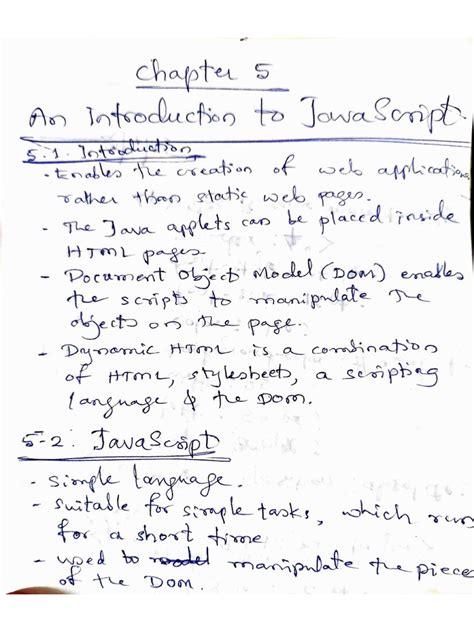 Chapter 5
An Introduction to JavaScript.
5.1. Introduction
- Enables the creation of web applications
rather than static web pages.
- The Java applets can be placed inside
HTML pages.
- Document Object Model (DOM) enables
the scripts to manipulate the
objects on the page.
- Dynamic HTML is a combination
of HTML, stylesheets, a scripting
language & the DOM.
5.2. JavaScript
- Simple language.
- Suitable for simple tasks, which run
for a short time
- used to manipulate the piece
of the DOM.